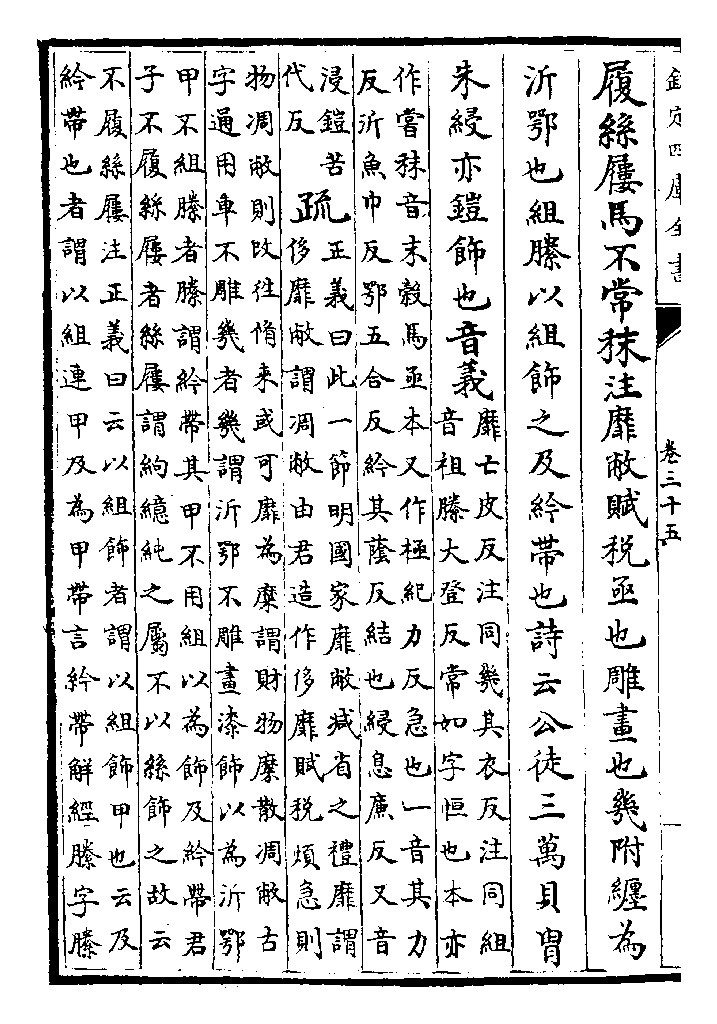 欽定四庫全書
卷三十五
履絲屨馬不常秣注靡敝賦税亟也雕畫也幾附纒為
沂鄂也組縢以組飾之及紟帶也詩云公徒三萬貝胄
朱綅亦鎧飾也音義
靡亡皮反注同幾其衣反注同組
音祖縢大登反常如字恒也本亦
作嘗秣音末榖馬亟本又作極紀力反急也一音其力
反沂魚巾反鄂五合反紟其蔭反結也綅息廉反又音
浸鎧苦
代反
疏
正義曰此一節明國家靡敝減省之禮靡謂
侈靡敝謂凋敝由君造作侈靡賦税煩急則
物凋敝則改往脩來或可靡為糜謂財物糜散凋敝古
字通用車不雕幾者幾謂沂鄂不雕畫漆飾以為沂鄂
甲不組縢者縢謂紟帶其甲不用組以為飾及紟帶君
子不履絲屨者絲屨謂絇繶純之屬不以絲飾之故云
不履絲屨注正義曰云以組飾者謂以組飾甲也云及
紟帶也者謂以組連甲及為甲帶言紟帶解經縢字縢